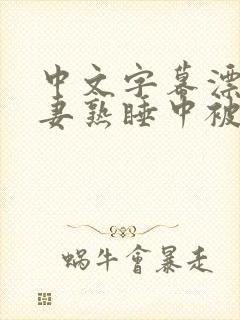 中文字幕漂
妻熟睡中被
蜗牛會暴走